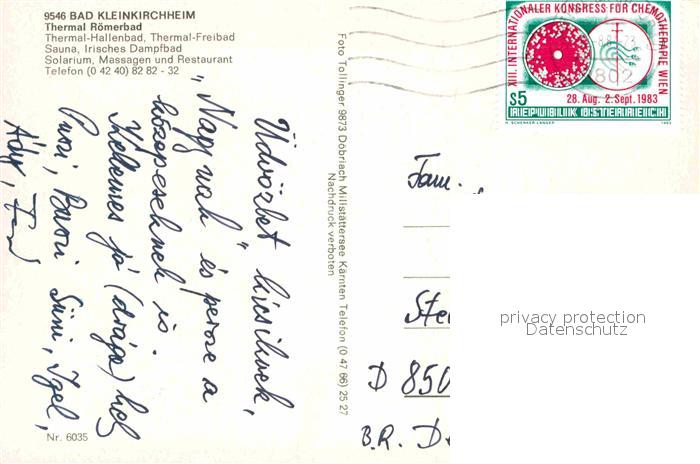 9546 BAD KLEINKIRCHHEIM
Thermal Römerbad
Thermal-Hallenbad, Thermal-Freibad
Sauna, Irisches Dampfbad
Solarium, Massagen und Restaurant
Telefon (0 42 40) 82 82 - 32
Üdvözlet kicsiknek,
"Nagy nak" és persze a
középesnek is.
Kellemes jó (drága) hely
Puszi, Süni, Igel,
Nr. 6035
Foto Tollinger 9873 Döbriach Millstättersee Kärnten Telefon (0 47 66) 25 27
Nachdruck verboten
XIII. INTERNATIONALER KONGRESS FÜR CHEMOTHERAPIE WIEN
28. Aug. 2. Sept. 1983
S5
REPUBLIK ÖSTERREICH
H. SCHENKER-LANGER
1983
9802
Fam.
Ste
D 850
B.R. D
privacy protection
Datenschutz